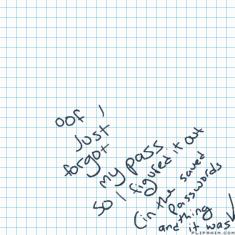 oof I
just
forgot
my pass
so I figured it out
(in the saved
passwords
and thing
it was
FLIPANIM.COM